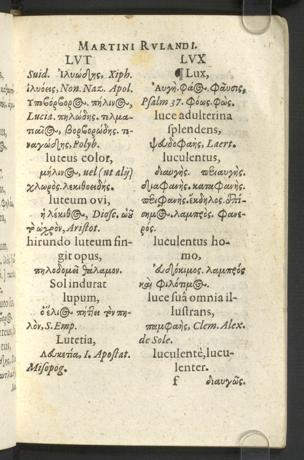 MARTINI RVLANDI.
LVT
Suid. ἰλυώδης, Xiph.
ἰλυόεις, Non. Naz. Apol.
πήλιν@.
Lucia. πηλώδης. τελμα-
βορβορώδης. τε-
ναγώδης, Polyb.
luteus color,
μήλιν@, vel (ut alij)
χλωρός. λεκιθοειδής.
luteum ovi,
ἡ λέκιθ@, Diosc. ὠοῦ
ὠχρὸν, Aristot.
hirundo luteum fin-
git opus,
πηλοδομεῖ θάλαμον.
Sol indurat
lupum,
ὁ ἥλι@ πήσσει τὸν πη-
λὸν, S. Emp.
Lutetia,
Λουκετία, I. Apostat.
Misopog.
LVX
¶ Lux,
Αὐγή. φά@. φαῦσις,
Psalm 37. φόως. φῶς.
luce adulterina
splendens,
ψευδοφαής, Laert.
luculentus,
διαυγής. περιαυγής.
διαφανής. καταφανής.
περιφανής. ἔκδηλος. ἐπί-
σημ@. λαμπρός. φανε-
ρός.
luculentus ho-
mo,
εὐδόκιμος. λαμπρός
καὶ φιλότιμ@.
luce sua omnia il-
lustrans,
παμφαής, Clem. Alex.
de Sole.
luculentè, lucu-
lenter.
f διαυγῶς.